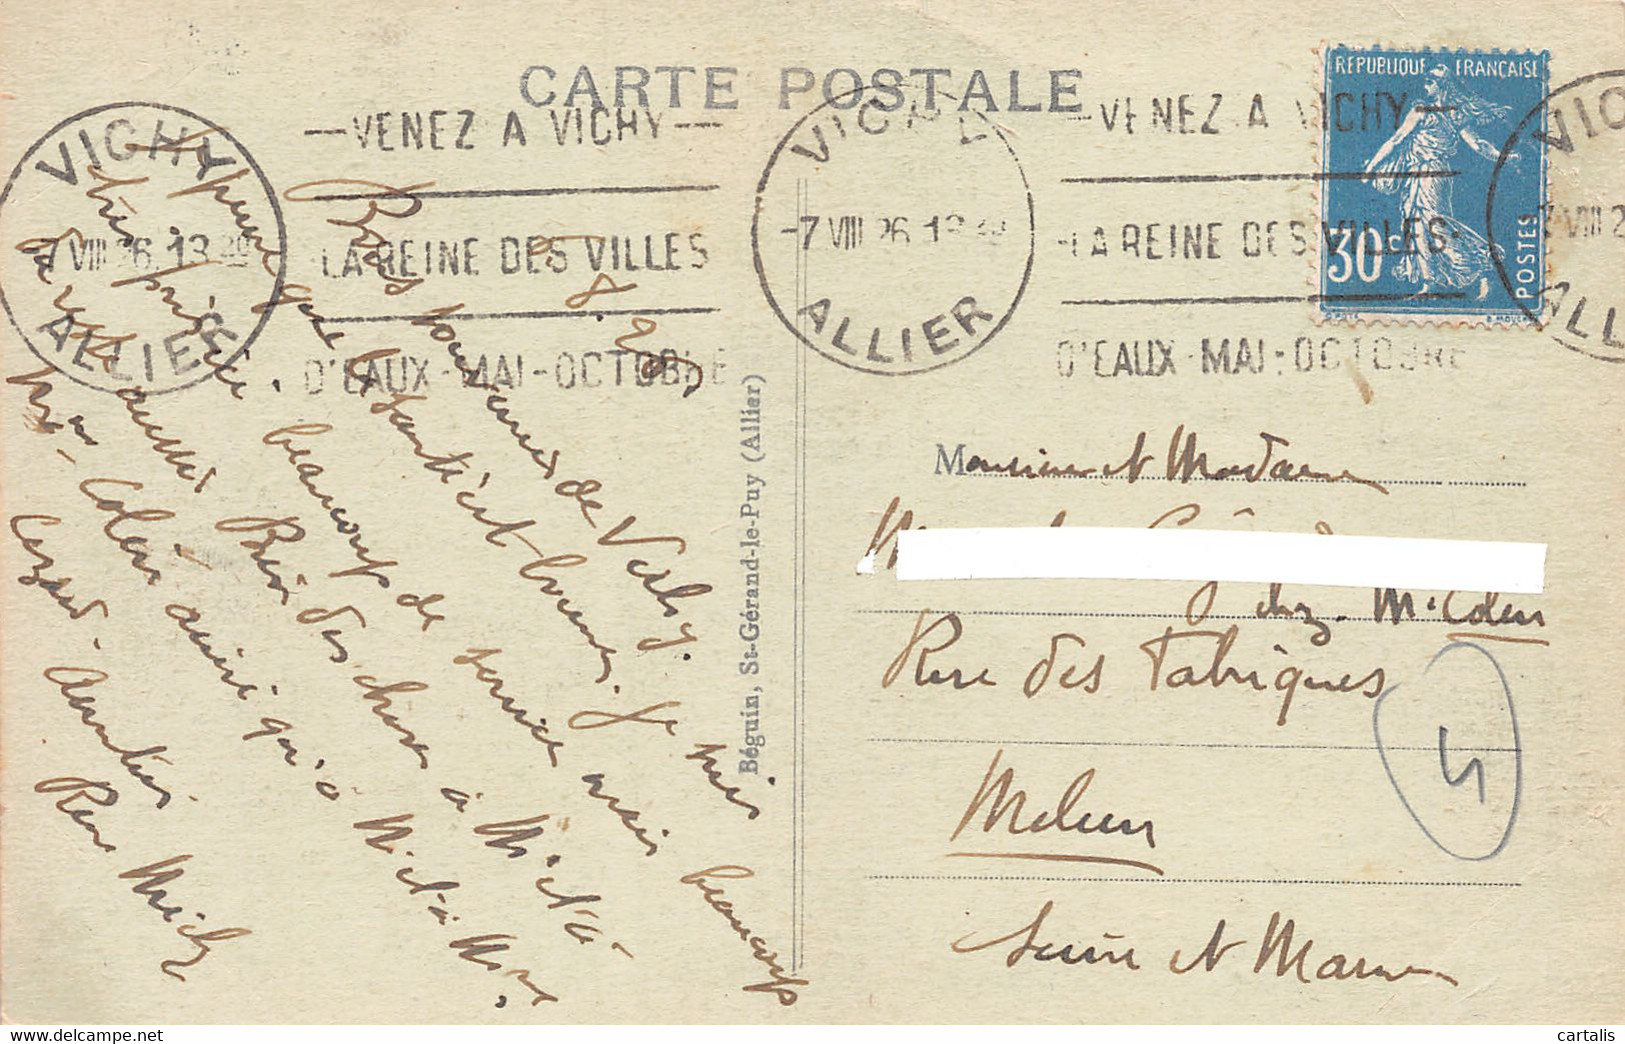 CARTE POSTALE
VENEZ A VICHY
LA REINE DES VILLES
D'EAUX - MAI - OCTOBRE
VICHY
7 VIII 26 13 30
ALLIER
VICHY
-7 VIII 26 13 30
ALLIER
VENEZ A VICHY
LA REINE DES VILLES
D'EAUX - MAI - OCTOBRE
REPUBLIQUE FRANÇAISE
30 c
POSTES
VIC
7 VIII 2
ALL
Béguin, St-Gérand-le-Puy (Allier)
8.26
Bons souvenirs de Vichy. Je suis
très beaucoup
que la santé est bonne. Je
beaucoup de service mais beaucoup
aussi. Bien des choses à M. et à
Mme Colen ainsi qu'à M. et à Mme
René
Monsieur et Madame
chez M. Colen
Rue des Fabriques
Melun
Seine et Marne
5
cartalis